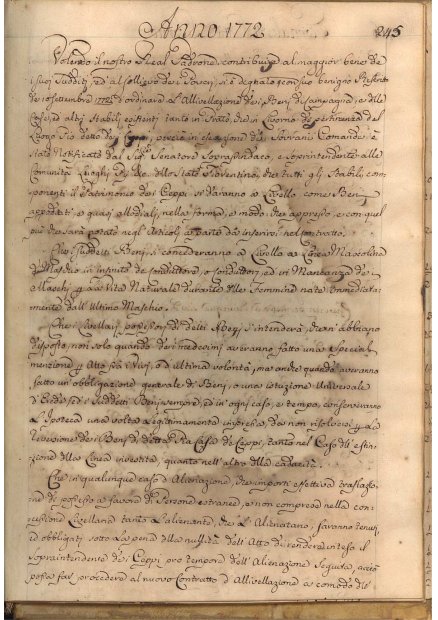 Anno 1772 245
Volendo il nostro Real Padrone contribuire al maggior bene de
i suoi Sudditi, ed al sollievo dei Poveri, si è degnato con suo benigno Rescritto
de 10 settembre 1772 d'ordinare l'Allivellazione dei Beni di campagna, e delle
Case, ed altri Stabili esistenti tanto in Stato, che in Livorno di pertinenza del
Luogo Pio detto dei Ceppi, perciò in esecuzione de Sovrani Comandi è
stato Notificato dal Sig. Senatore Soprasindaco, e Soprintendente alle
Comunità Luoghi Pii &c. dello Stato Fiorentino, che tutti gli Stabili com-
ponenti il Patrimonio dei Ceppi si daranno a Livello come Beni
appodiati, e quasi allodiali, nella forma, e modo che appresso, e con quel
più che sarà notato negl'Articoli a parte da inserirsi nel Contratto.
Che Suddetti Beni si concederanno a Livello a Linea Mascolina
di Maschio in infinito de conduttore, o conduttori, ed in Mancanza de
Maschi p. a Vita Naturale durante delle Femmine nate immediata-
mente dall'Ultimo Maschio.
Che i Livellarj possessori di detti Averi s'intenderà che n'abbiano
disposto, non solo quando dei medesimi averanno fatto una special
menzione p. Atto fra i Vivi, o d'ultima volontà, ma anche quando averanno
fatto un'obbligazione generale di Beni, o una istituzione Universale
d'Eredi, ed i Suddetti Beni sempre, ed in ogni caso, e tempo, conserveranno
L'Ipoteca una volta legittimamente impressa, da non risolversi p. La
Devoluzione dei Beni di detta Pia Casa de Ceppi, tanto nel Caso dell'estin-
zione della Linea investita, quanto nell'altro della caducità.
Che in qualunque caso d'Alienazione, che importi effettiva traslazio-
ne di possesso a favore di Persone estranee, e non comprese nella con-
cessione Livellaria tanto l'alienante, che l'Alienatario, saranno tenuti
ed obbligati sotto la pena della nullità dell'Atto di rendere inteso il
Sopraintendente dei Ceppi pro tempore dell'Alienazione Seguita, acciò
possa far procedere al nuovo Contratto d'Allivellazione a comodo del